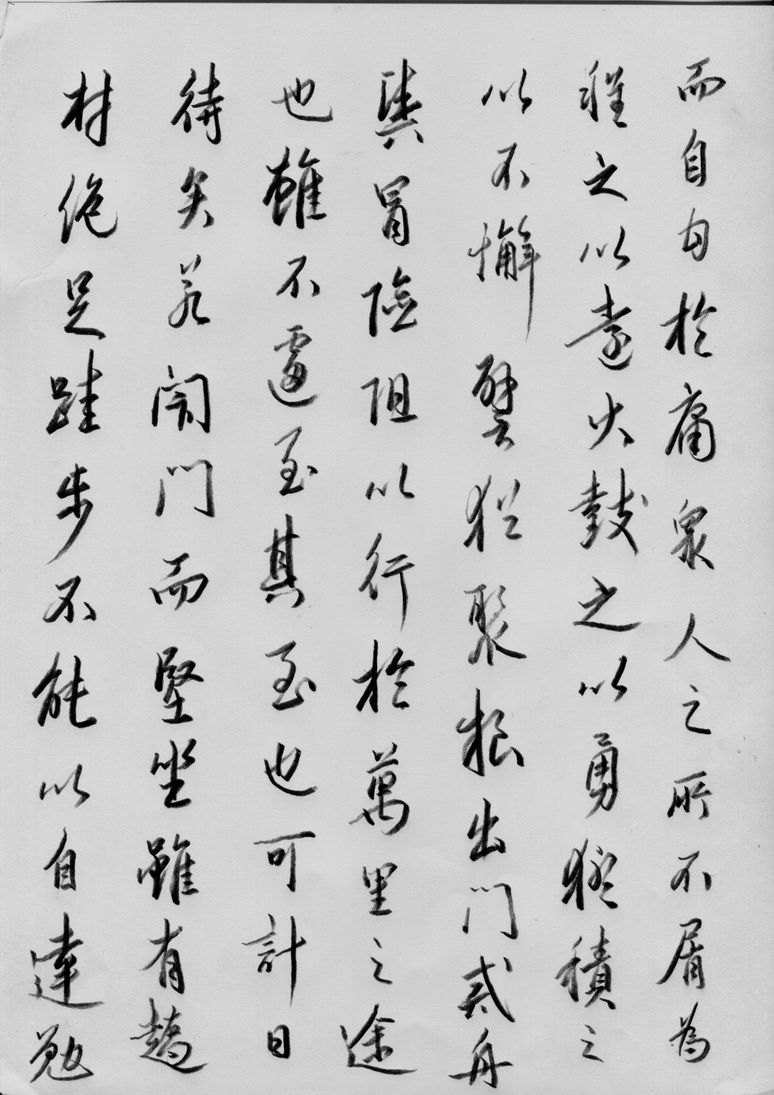 而自於庸衆人之所不屑為
程之以遠大鼓之以勇猛積之
以不懈譬猶聚粮出門貳舟
輿冒險阻以行於萬里之途
也雖不遽至其至也可計日
待矣若閉門而堅坐雖有趫
材絕足跬步不能以自達勉